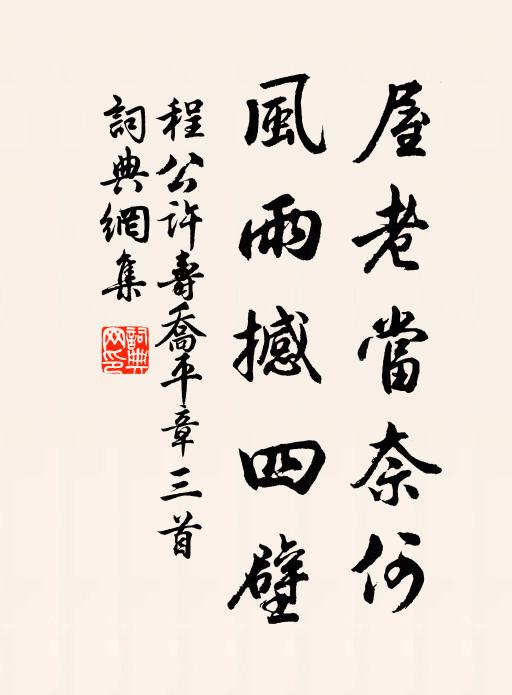 屋老當奈何
風雨撼四壁
程公許壽喬平章三首
詞典網集
詞典網印